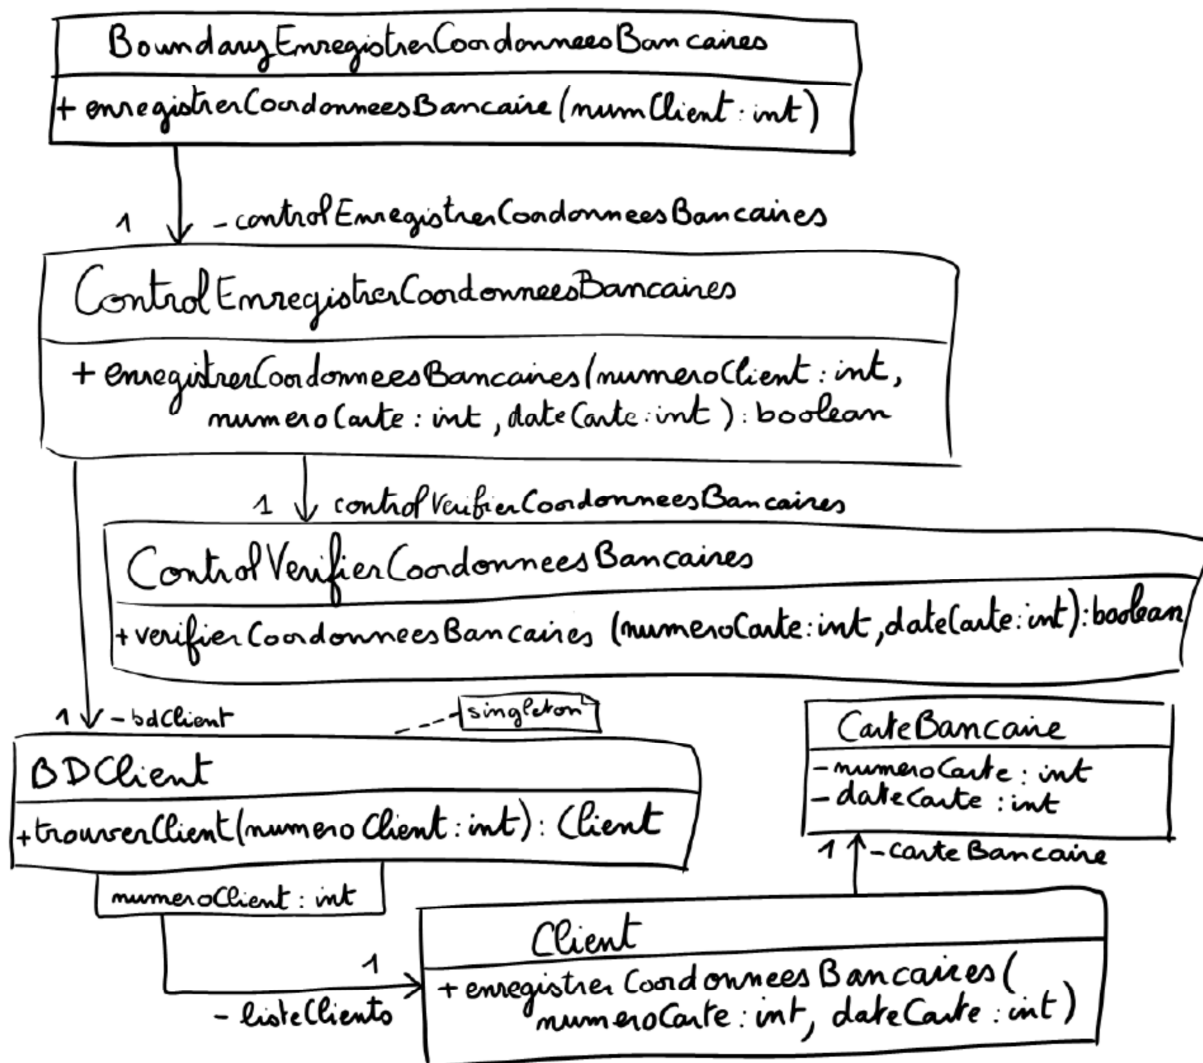 BoundaryEnregistrerCoordonneesBancaires
+ enregistrerCoordonneesBancaire (numClient : int)
1 - controlEnregistrerCoordonneesBancaires
ControlEnregistrerCoordonneesBancaires
+ enregistrerCoordonneesBancaires(numeroClient : int,
numeroCarte : int, dateCarte : int) : boolean
1 controlVerifierCoordonneesBancaires
ControlVerifierCoordonneesBancaires
+ verifierCoordonneesBancaires (numeroCarte : int, dateCarte : int) : boolean
1 - bdClient
singleton
BDClient
+ trouverClient(numeroClient : int) : Client
numeroClient : int
CarteBancaire
- numeroCarte : int
- dateCarte : int
1 - carteBancaire
1
- listeClients
Client
+ enregistrerCoordonneesBancaires(
numeroCarte : int, dateCarte : int)